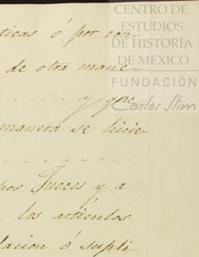 CENTRO DE
ESTUDIOS
DE HISTORIA
DE MEXICO
FUNDACIÓN
Carlos Slim
ticas ó por con
de otra mane
y que
manera se hicie
Jueces y a
los artículos
lacion ó supli